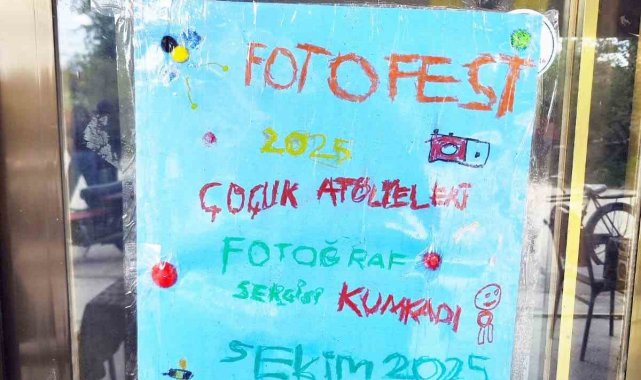 FOTOFEST
2025
ÇOÇUK ATÖLYELERİ
FOTOĞRAF
SERGİSİ KUMKADI
SEKİM 2025